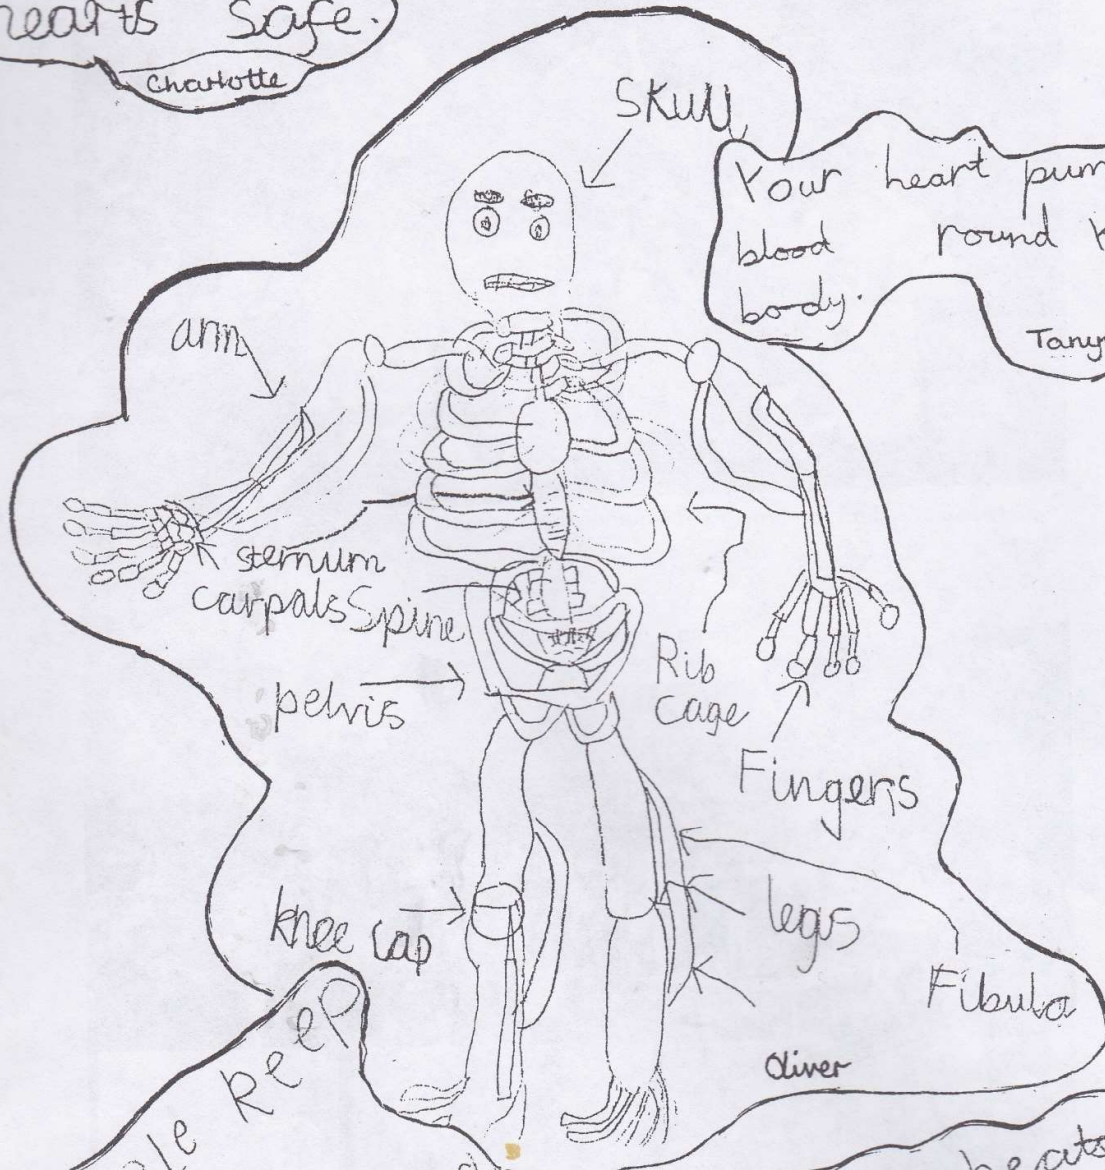 hearts safe.
Charlotte
Skull
Your heart pum
blood round
body.
Tany
arm
sternum
carpals
Spine
pelvis
Rib
cage
Fingers
knee cap
legs
Fibula
Oliver
ble keep
beats